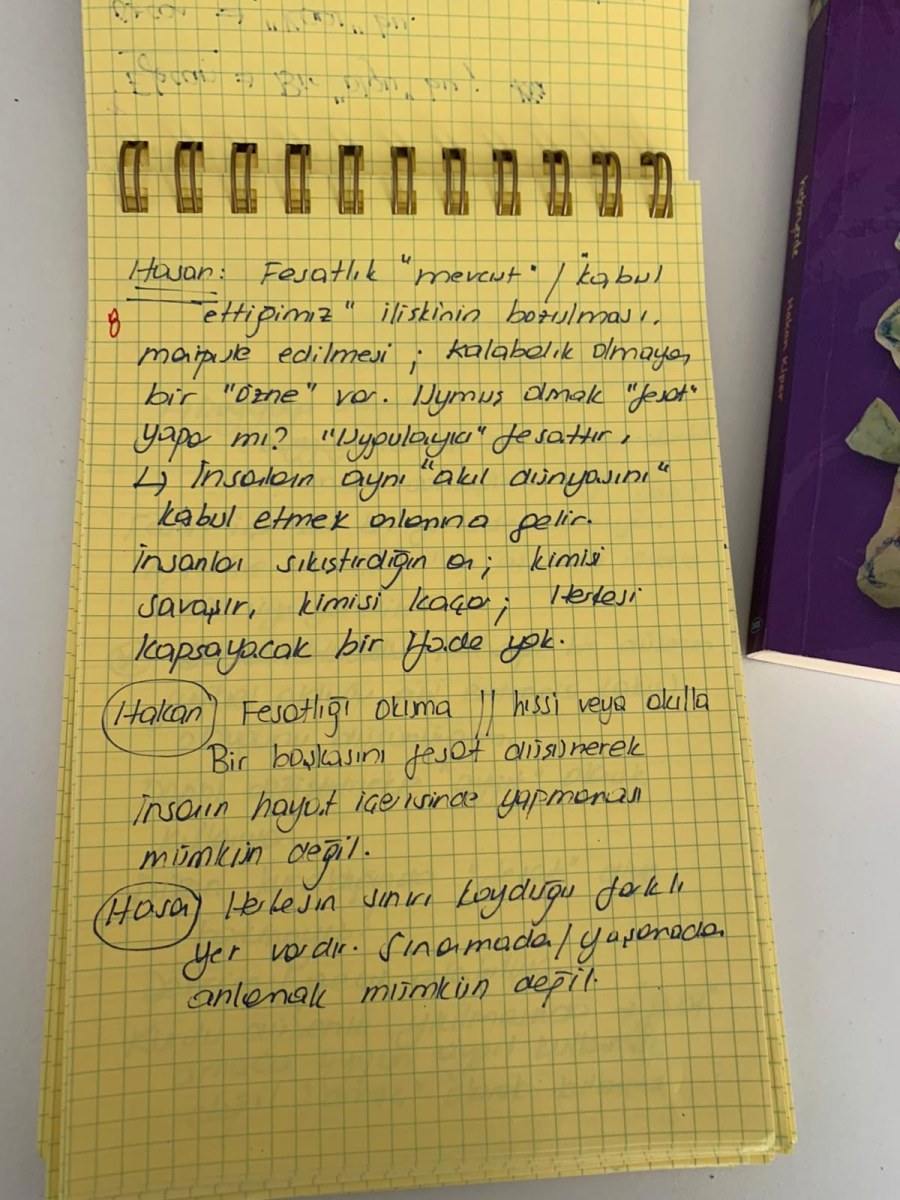 Hasan: Fesatlık "mevcut" / "kabul
8
ettiğimiz" ilişkinin bozulması,
manipüle edilmesi; kalabalık olmayan
bir "özne" var. Uymuş olmak "fesat"
yapar mı? "Uygulayıcı" fesattır,
↳ İnsanların aynı "akıl dünyasını"
kabul etmek anlamına gelir.
İnsanları sıkıştırdığın an; kimisi
savaşır, kimisi kaçar; Herkesi
kapsayacak bir ifade yok.
Hakan Fesatlığı okuma || hissi veya akılla
Bir başkasını fesat düşünerek
İnsanın hayat içerisinde yapmaması
mümkün değil.
Hasan Herkesin sınırı koyduğu farklı
yer vardır. Sınamadan/yaşamadan
anlamak mümkün değil.
Hakan Kiper